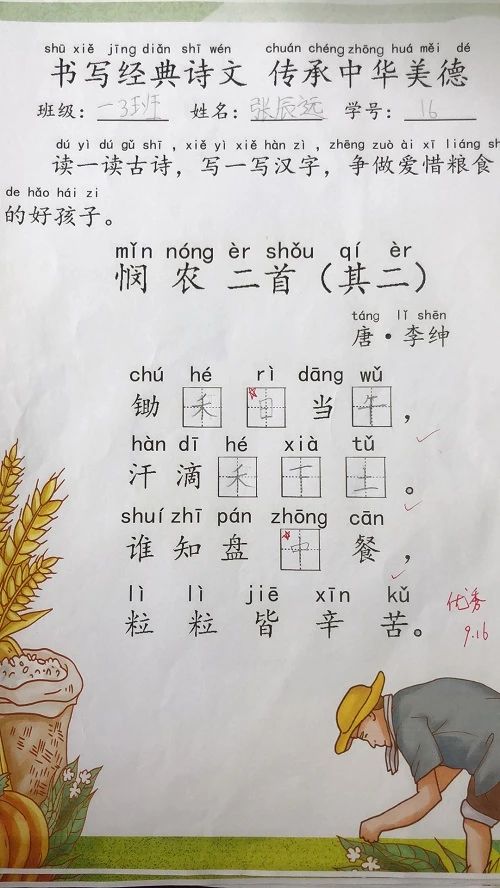 shū xiě jīng diǎn shī wén chuán chéng zhōng huá měi dé
书写经典诗文 传承中华美德
班级：一3班 姓名：张辰远 学号：16
dú yì dú gǔ shī , xiě yì xiě hàn zì , zhēng zuò ài xī liáng sh
读一读古诗，写一写汉字，争做爱惜粮食
de hǎo hái zi
的好孩子。
mǐn nóng èr shǒu qí èr
悯农二首（其二）
táng lǐ shēn
唐·李绅
chú hé rì dāng wǔ
锄禾日当午，
hàn dī hé xià tǔ
汗滴禾下土。
shuí zhī pán zhōng cān
谁知盘中餐，
lì lì jiē xīn kǔ
粒粒皆辛苦。
优秀
9.16